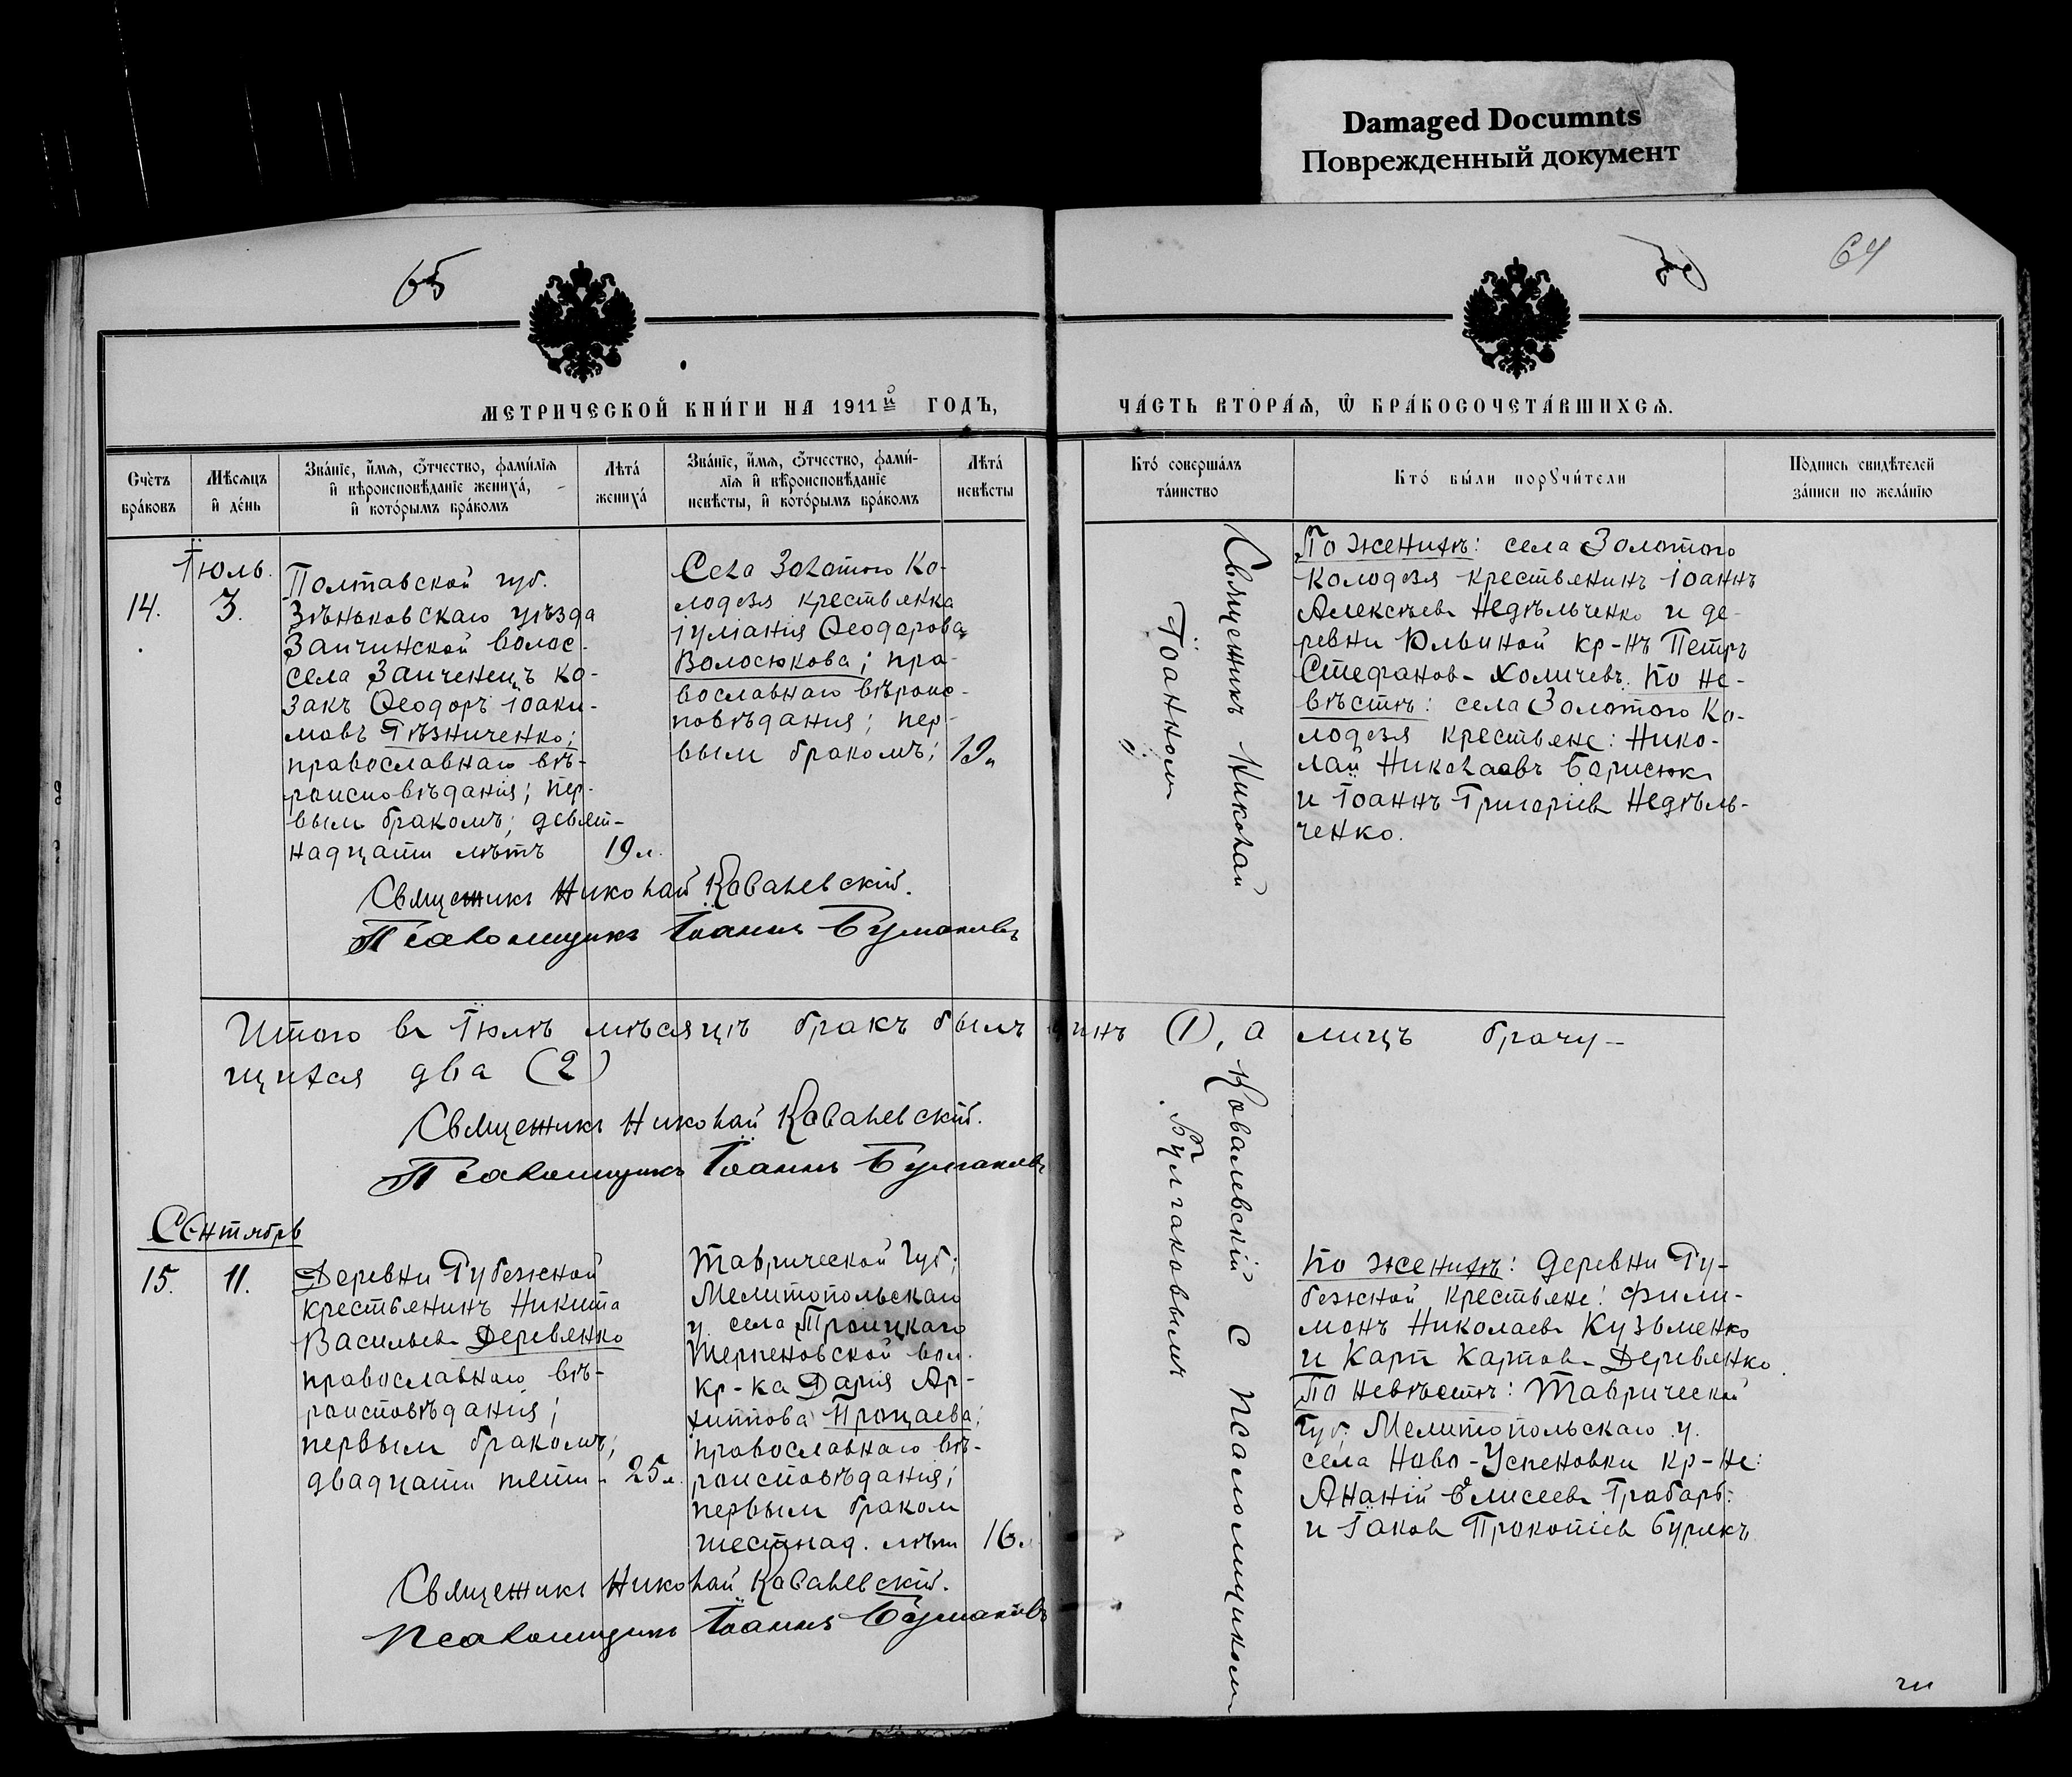 Damaged Documnts
Поврежденный документ
65
64
МЕТРИЧЕСКОЙ КНИ́ГИ НА 1911й ГОДЪ,
ЧА́СТЬ ВТОРА́Ѧ, Ѽ БРА́КОСОЧЕТА́ВШИХСѦ.
Счетъ бра́ковъ
Мѣсѧцъ и де́нь
Зва́нїе, и́мѧ, ѻ́тчество, фами́лїѧ
и вѣроисповѣ́данїе жениха́,
и кото́рымъ бра́комъ
Лѣта́ жениха́
Зва́нїе, и́мѧ, ѻ́тчество, фами́-
лїѧ и вѣроисповѣ́данїе
невѣ́сты, и кото́рымъ бра́комъ
Лѣта́ невѣ́сты
Кто́ соверша́лъ та́инство
Кто́ бы́ли порꙋчи́тели
По́дпись свидѣ́телей
за́писи по жела́нїю
Іюль.
14.
3.
Полтавской губ.
Зѣньковскаго уѣзда
Заичинской волос-
села Заиченецъ ко-
закъ Ѳеодоръ Іоаки-
мовъ Рѣзниченко;
православнаго вѣ-
роисповѣданія; пер-
вымъ бракомъ; девят-
надцати лѣтъ
19 л.
Села Золотого Ко-
лодезя крестьянка
Іуліанія Ѳеодорова
Волосюкова; пра-
вославнаго вѣроис-
повѣданія; пер-
вымъ бракомъ;
19
Священникъ Николай Ковалевскій.
Псаломщикъ Іоаннъ Булгаковъ
Священникъ Николай Ковалевскій с псаломщикомъ
Іоанномъ Булгаковымъ
По женихѣ: села Золотого
Колодезя крестьянинъ Іоаннъ
Алексѣевъ Недѣльченко и де-
ревни Юльиной кр-нъ Петръ
Стефановъ Холичевъ. По не-
вѣстѣ: села Золотого Ко-
лодезя крестьяне: Нико-
лай Николаевъ Борисюкъ
и Іоаннъ Григоріевъ Недѣль-
ченко.
Итого въ Іюлѣ мѣсяцѣ бракъ былъ одинъ (1), а лицъ брачу-
щихся два (2)
Священникъ Николай Ковалевскій.
Псаломщикъ Іоаннъ Булгаковъ
Сентябрь
15.
11.
Деревни Рубежной
крестьянинъ Никита
Васильевъ Деревянко
православнаго вѣ-
роисповѣданія;
первымъ бракомъ;
двадцати пяти
25 л.
Таврической губ;
Мелитопольскаго
у. села Троицкаго
Терпеновской вол.
кр-ка Дарія Ар-
хиппова Процаева;
православнаго вѣ-
роисповѣданія;
первымъ бракомъ
шестнад. лѣтъ
16 л.
Священникъ Николай Ковалевскій.
Псаломщикъ Іоаннъ Булгаковъ
По женихѣ: деревни Ру-
бежной крестьяне: Фили-
монъ Николаевъ Кузьменко
и Карпъ Карповъ Деревянко.
По невѣстѣ: Таврической
губ. Мелитопольскаго у.
села Ново-Успеновки кр-не:
Ананій Елисеевъ Грабарь:
и Іаковъ Прокопіевъ Бурякъ